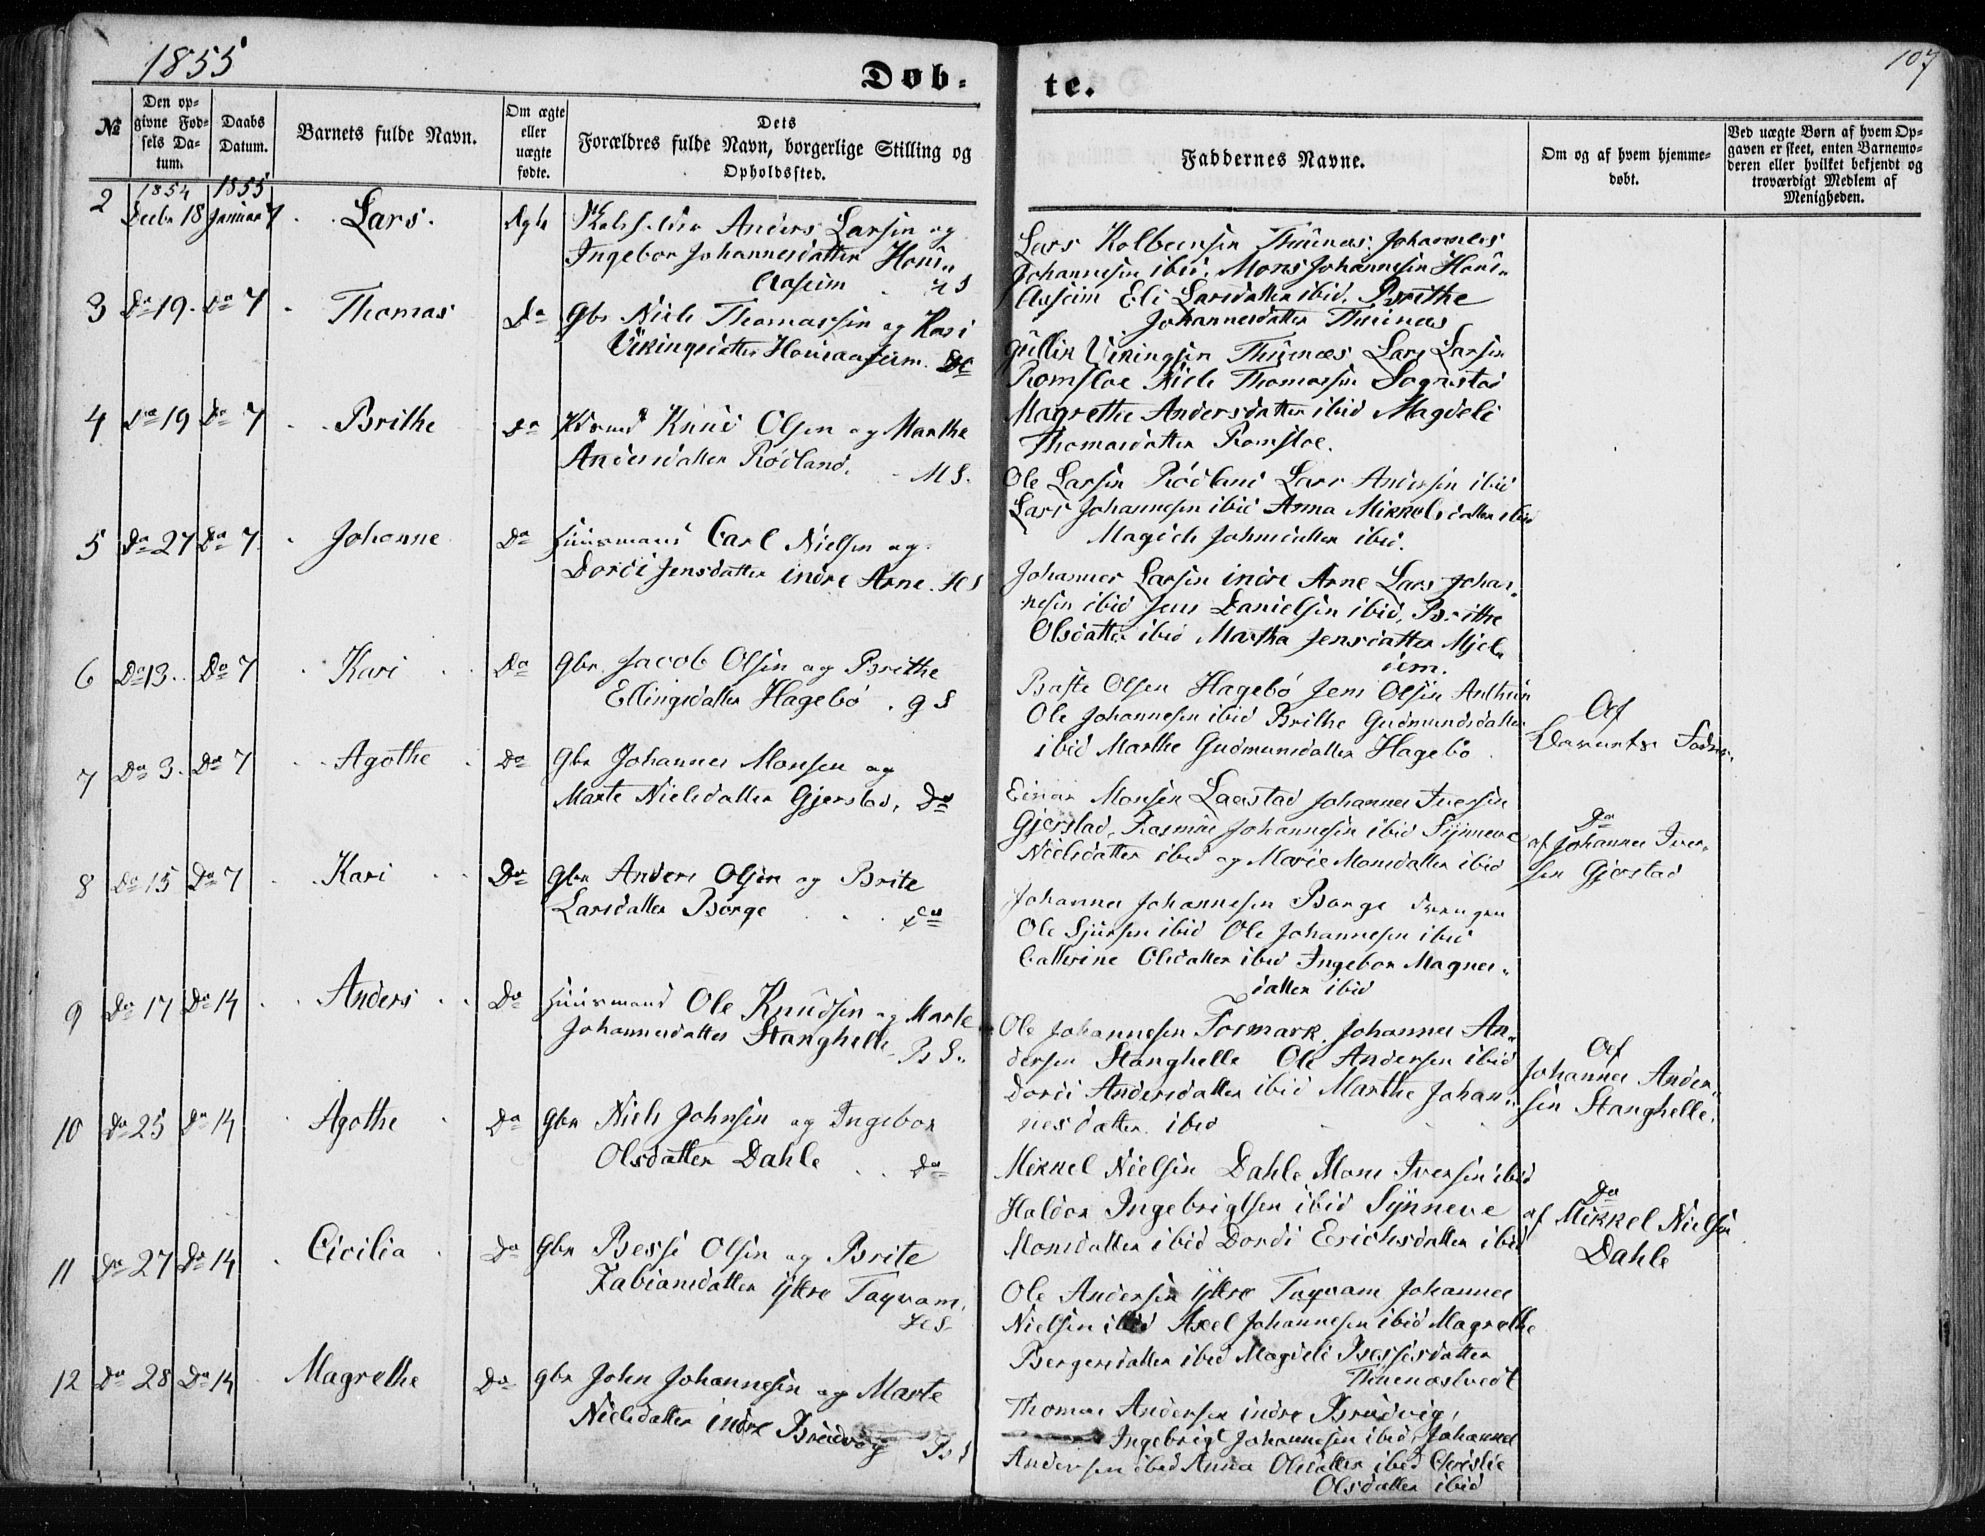 1855
107
Døb-
te.
№
Den op-
givne Fød-
sels Da-
tum.
Daabs
Datum.
Barnets fulde Navn.
Om ægte
eller
uægte
fødte.
Dets
Forældres fulde Navn, borgerlige Stilling og
Opholdssted.
Faddernes Navne.
Om og af hvem hjemme-
døbt.
Ved uægte Børn af hvem Op-
gaven er skeet, enten Barnemo-
deren eller hvilket bekjendt og
troværdigt Medlem af
Menigheden.
1854
1855
2 Decbr 18 Januar 7 Lars. Ægte Anders Larsen og
Ingebor Johannesdatter
Lars Kolbeinsen Thunæs Johannes
Johannesen ibid. Mons Johannesen
Eli Larsdatter ibid. Brithe
Johannesdatter Thunæs
3 Do 19. Do 7 Thomas Do Gbr Niels Thomassen og Kari
Vikingsdatter Do
Gullik Vikingsen Thunæs Lars Larsen
Romsloe Niels Thomassen
Magrethe Andersdatter ibid Magdeli
Thomasdatter Romsloe.
4 Do 19 Do 7 Brithe Do Knud Olsen og Marthe
Andersdatter Rødland. MS.
Ole Larsen Rødland Lars Andersen ibid
Lars Johannesen ibid Anna Mikkelsdatter ibid
Johnsdatter ibid.
5 Do 27 Do 7. Johanne Do Huusmand Carl Nielsen og
Dordi Jensdatter indre Arne. HS
Johannes Larsen indre Arne Lars Johan-
nesen ibid Jens Danielsen ibid, Brithe
Olsdatter ibid Martha Jensdatter Mjel-
dem.
6 Do 13. Do 7 Kari Do Gbr. Jacob Olsen og Brithe
Ellingsdatter Hagebø. GS
Olsen Hagebø Jens Olsen
Ole Johannesen ibid Brithe Gudmundsdatter
ibid Marthe Gudmunsdatter Hagebø
Af
Barnets Fader.
7 Do 3. Do 7 Agothe Do Gbr Johannes Monsen og
Marte Nielsdatter Gjerstad, Do
Einar Monsen Johannes Iversen
Gjerstad, Rasmus Johannesen ibid Synneve
Nielsdatter ibid og Marie Monsdatter ibid
Do
af Johannes Iver-
sen Gjerstad
8 Do 15 Do 7 Kari Do Gbr Anders Olsen og Brite
Larsdatter Borge Do
Johannes Johannesen Borge drengen
Ole Sjursen ibid Ole Johannesen ibid
Cathrine Olsdatter ibid Ingebor Magnes-
datter ibid
9 Do 17 Do 14 Anders Do Huusmand Ole Knudsen og Marte
Johannesdatter Stanghelle BS.
Ole Johannesen Fosmark. Johannes An-
dersen Stanghelle Ole Andersen ibid
Dordi Andersdatter ibid Marthe Johan-
nesdatter ibid
Af
Johannes Ander-
sen Stanghelle.
10 Do 25 Do 14 Agothe Do Gbr Niels Johnsen og Ingebor
Olsdatter Dahle Do
Mikkel Nielsen Dahle Mons Iversen ibid
Haldor Ingebrigtsen ibid Synneve
Monsdatter ibid Dordi Erichsdatter ibid
Do
af Mikkel Nielsen
Dahle
11 Do 27 Do 14 Cicilia Do Gbr Besse Olsen og Brite
Fabiansdatter ytre Taqvam. HS.
Ole Andersen ytre Taqvam Johannes
Nielsen ibid Axel Johannesen ibid Magrethe
Bergersdatter ibid Magdeli Bessesdatter
Thunæstvedt
12 Do 28 Do 14 Magrethe Do Gbr John Johannesen og Marte
Nielsdatter indre Bredvig BS
Thomas Andersen indre Bredvig,
Ingebrigt Johannesen ibid, Johannes
Andersen ibid Anna Olsdatter ibid
Olsdatter ibid